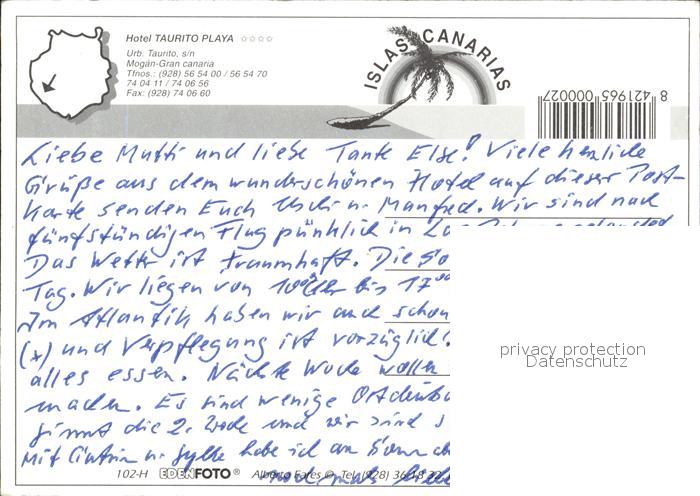 Hotel TAURITO PLAYA ☆☆☆☆
Urb. Taurito, s/n
Mogán-Gran canaria
Tfnos.: (928) 56 54 00 / 56 54 70
74 04 11 / 74 06 56
Fax: (928) 74 06 60
ISLAS CANARIAS
8 421965 000027
Liebe Mutti und liebe Tante Else! Viele herzliche
Grüße aus dem wunderschönen Hotel auf dieser Post-
karte senden Euch Uschi u. Manfred. Wir sind nach
fünfstündigen Flug pünklich in
Das Wetter ist traumhaft. Die So
Tag. Wir liegen von 10 Uhr bis 17⁰⁰
Im Atlantik haben wir auch schon
(x) und Verpflegung ist vorzüglich!
alles essen. Nächste Woche wollen
machen. Es sind wenige
ginnt die 2. Woche und wir sind
Mit u. habe ich am
nochmals
102-H EDENFOTO ® Alberto Fares © Tel. (928) 36 18 32
privacy protection
Datenschutz